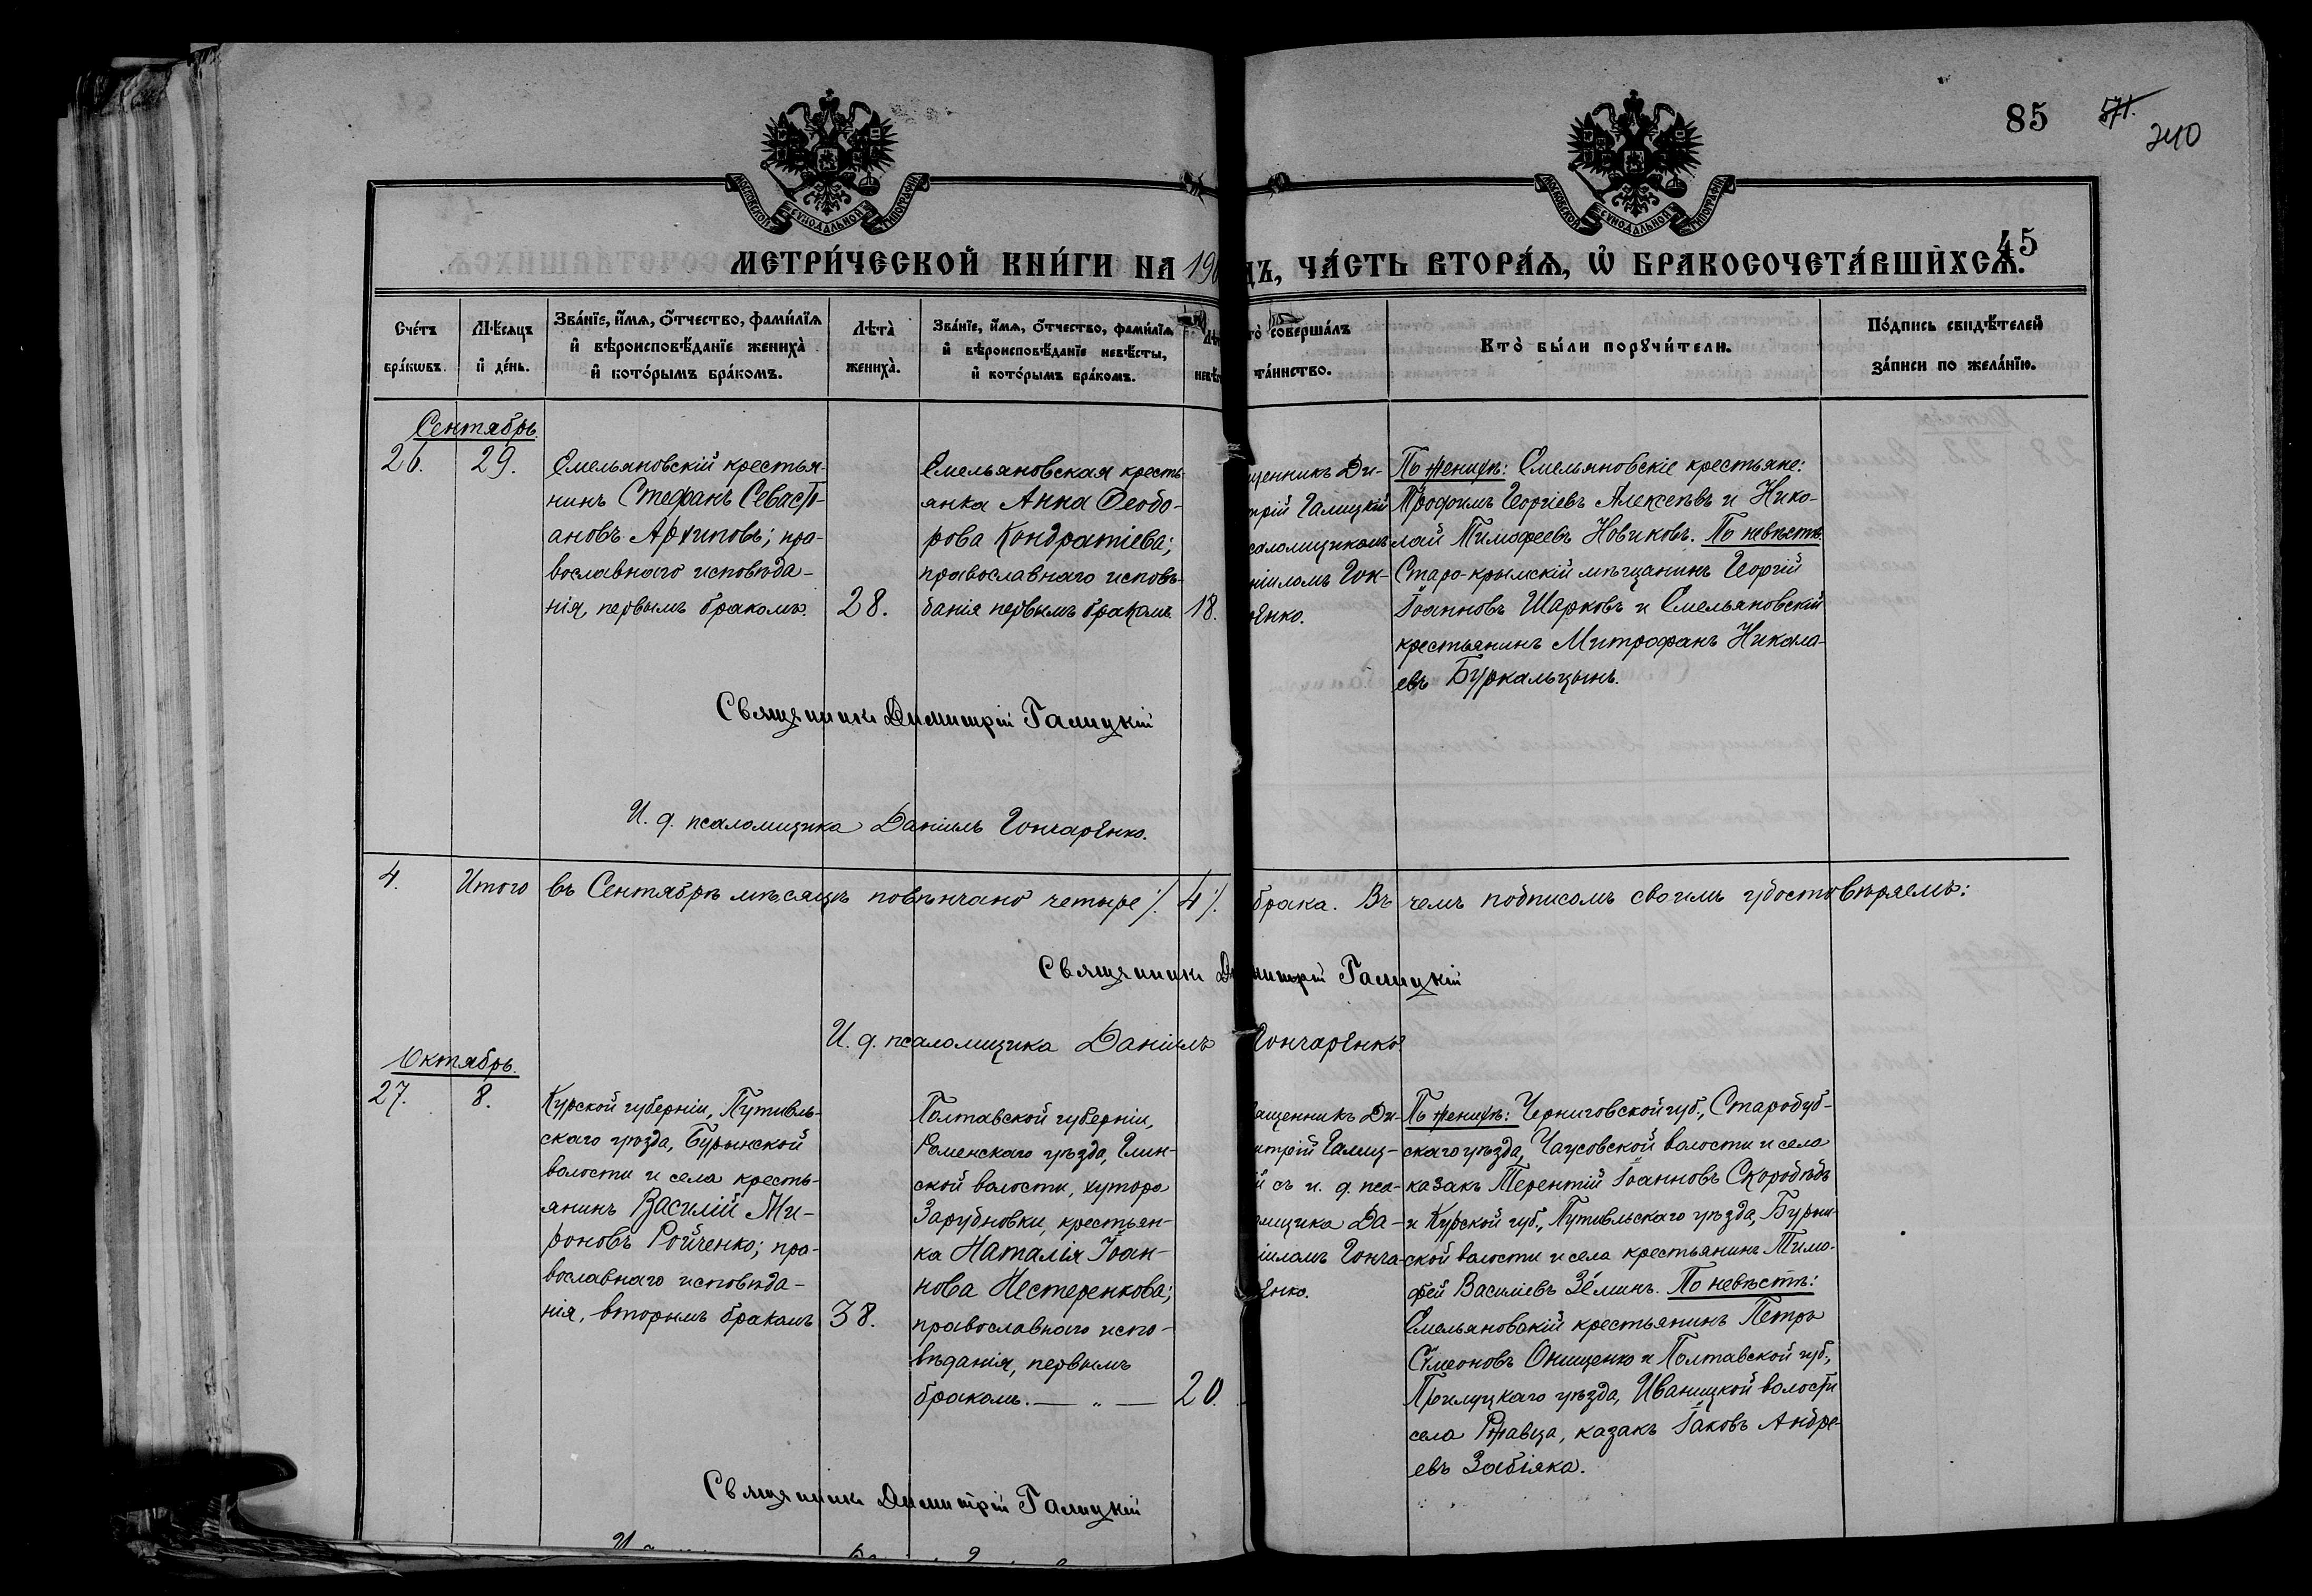 85 571.
240
МОСКОВСКОЙ СУНОДАЛЬНОЙ ТИПОГРАФІИ
МОСКОВСКОЙ СУНОДАЛЬНОЙ ТИПОГРАФІИ
45
МЕТРИ́ЧЕСКОЙ КНИ́ГИ НА 190
ДЪ, ЧА́СТЬ ВТОРА́Ѧ, Ѡ҆ БРАКОСОЧЕТА́ВШИХСѦ.
Сче́тъ
бра́кѡвъ.
Мѣ́сѧцъ
и҆ де́нь.
Зва́нїе, и҆́мѧ, ѻ҆́тчество, фами́лїѧ
и҆ вѣроисповѣ́данїе жениха̀
и҆ кото́рымъ бра́комъ.
Лѣта̀
жениха̀.
Зва́нїе, и҆́мѧ, ѻ҆́тчество, фами́лїѧ
и҆ вѣроисповѣ́данїе невѣ́сты,
и҆ кото́рымъ бра́комъ.
Лѣ
невѣ
то̀ соверша́лъ
та́инство.
Кто̀ бы́ли порꙋчи́тели.
По́дпись свидѣ́телей
за́писи по жела́нїю.
Сентябрь.
26. 29.
Емельяновскій крестья-
нинъ Стефанъ Севасті-
ановъ Архиповъ; пра-
вославнаго исповѣда-
нія, первымъ бракомъ.
28.
Емельяновская кресть-
янка Анна Ѳеодо-
рова Кондратіева;
православнаго исповѣ-
данія первымъ бракомъ.
18.
щенникъ Ди-
трій Галицкій
саломщикомъ
ніиломъ Гон-
ренко.
По женихѣ: Емельяновскіе крестьяне:
Трофимъ Георгіевъ Алексѣевъ и Нико-
лай Тимофеевъ Новиковъ. По невѣстѣ
Старо-крымскій мѣщанинъ Георгій
Іоанновъ Шарковъ и Емельяновскій
крестьянинъ Митрофанъ Никола-
евъ Буркальцынъ.
Священникъ Димитрій Галицкій
И. д. псаломщика Даніилъ Гончаренко.
4. Итого въ Сентябрѣ мѣсяцѣ повѣнчано четыре ⁒ 4 ⁒ брака. Въ чемъ подписомъ своимъ удостовѣряемъ:
Священникъ Димитрій Галицкій
И. д. псаломщика Даніилъ Гончаренко
Октябрь.
27. 8.
Курской губерніи, Путивль-
скаго уѣзда, Бурынской
волости и села кресть-
янинъ Василій Ми-
роновъ Ройченко; пра-
вославнаго исповѣда-
нія, вторымъ бракомъ
38.
Полтавской губерніи,
Роменскаго уѣзда, Глин-
ской волости, хутора
Зарубновки, крестьян-
ка Наталія Іоан-
нова Нестеренкова;
православнаго испо-
вѣданія, первымъ
бракомъ. — „ —
20.
ященникъ Ди-
итрій Галиц-
й съ и. д. пса-
омщика Да-
іиломъ Гонча-
енко.
По женихѣ: Черниговской губ., Стародуб-
скаго уѣзда, Чаусовской волости и села
казакъ Терентій Іоанновъ Скоробѣдъ
и Курской губ., Путивльскаго уѣзда, Бурын-
ской волости и села крестьянинъ Тимо-
фей Василіевъ Зёминъ. По невѣстѣ:
Емельяновскій крестьянинъ Петръ
Сѵмеоновъ Онищенко и Полтавской губ.,
Прилуцкаго уѣзда, Иваницкой волости
села Ржавца, казакъ Іаковъ Андре-
евъ Забіяка.
Священникъ Димитрій Галицкій